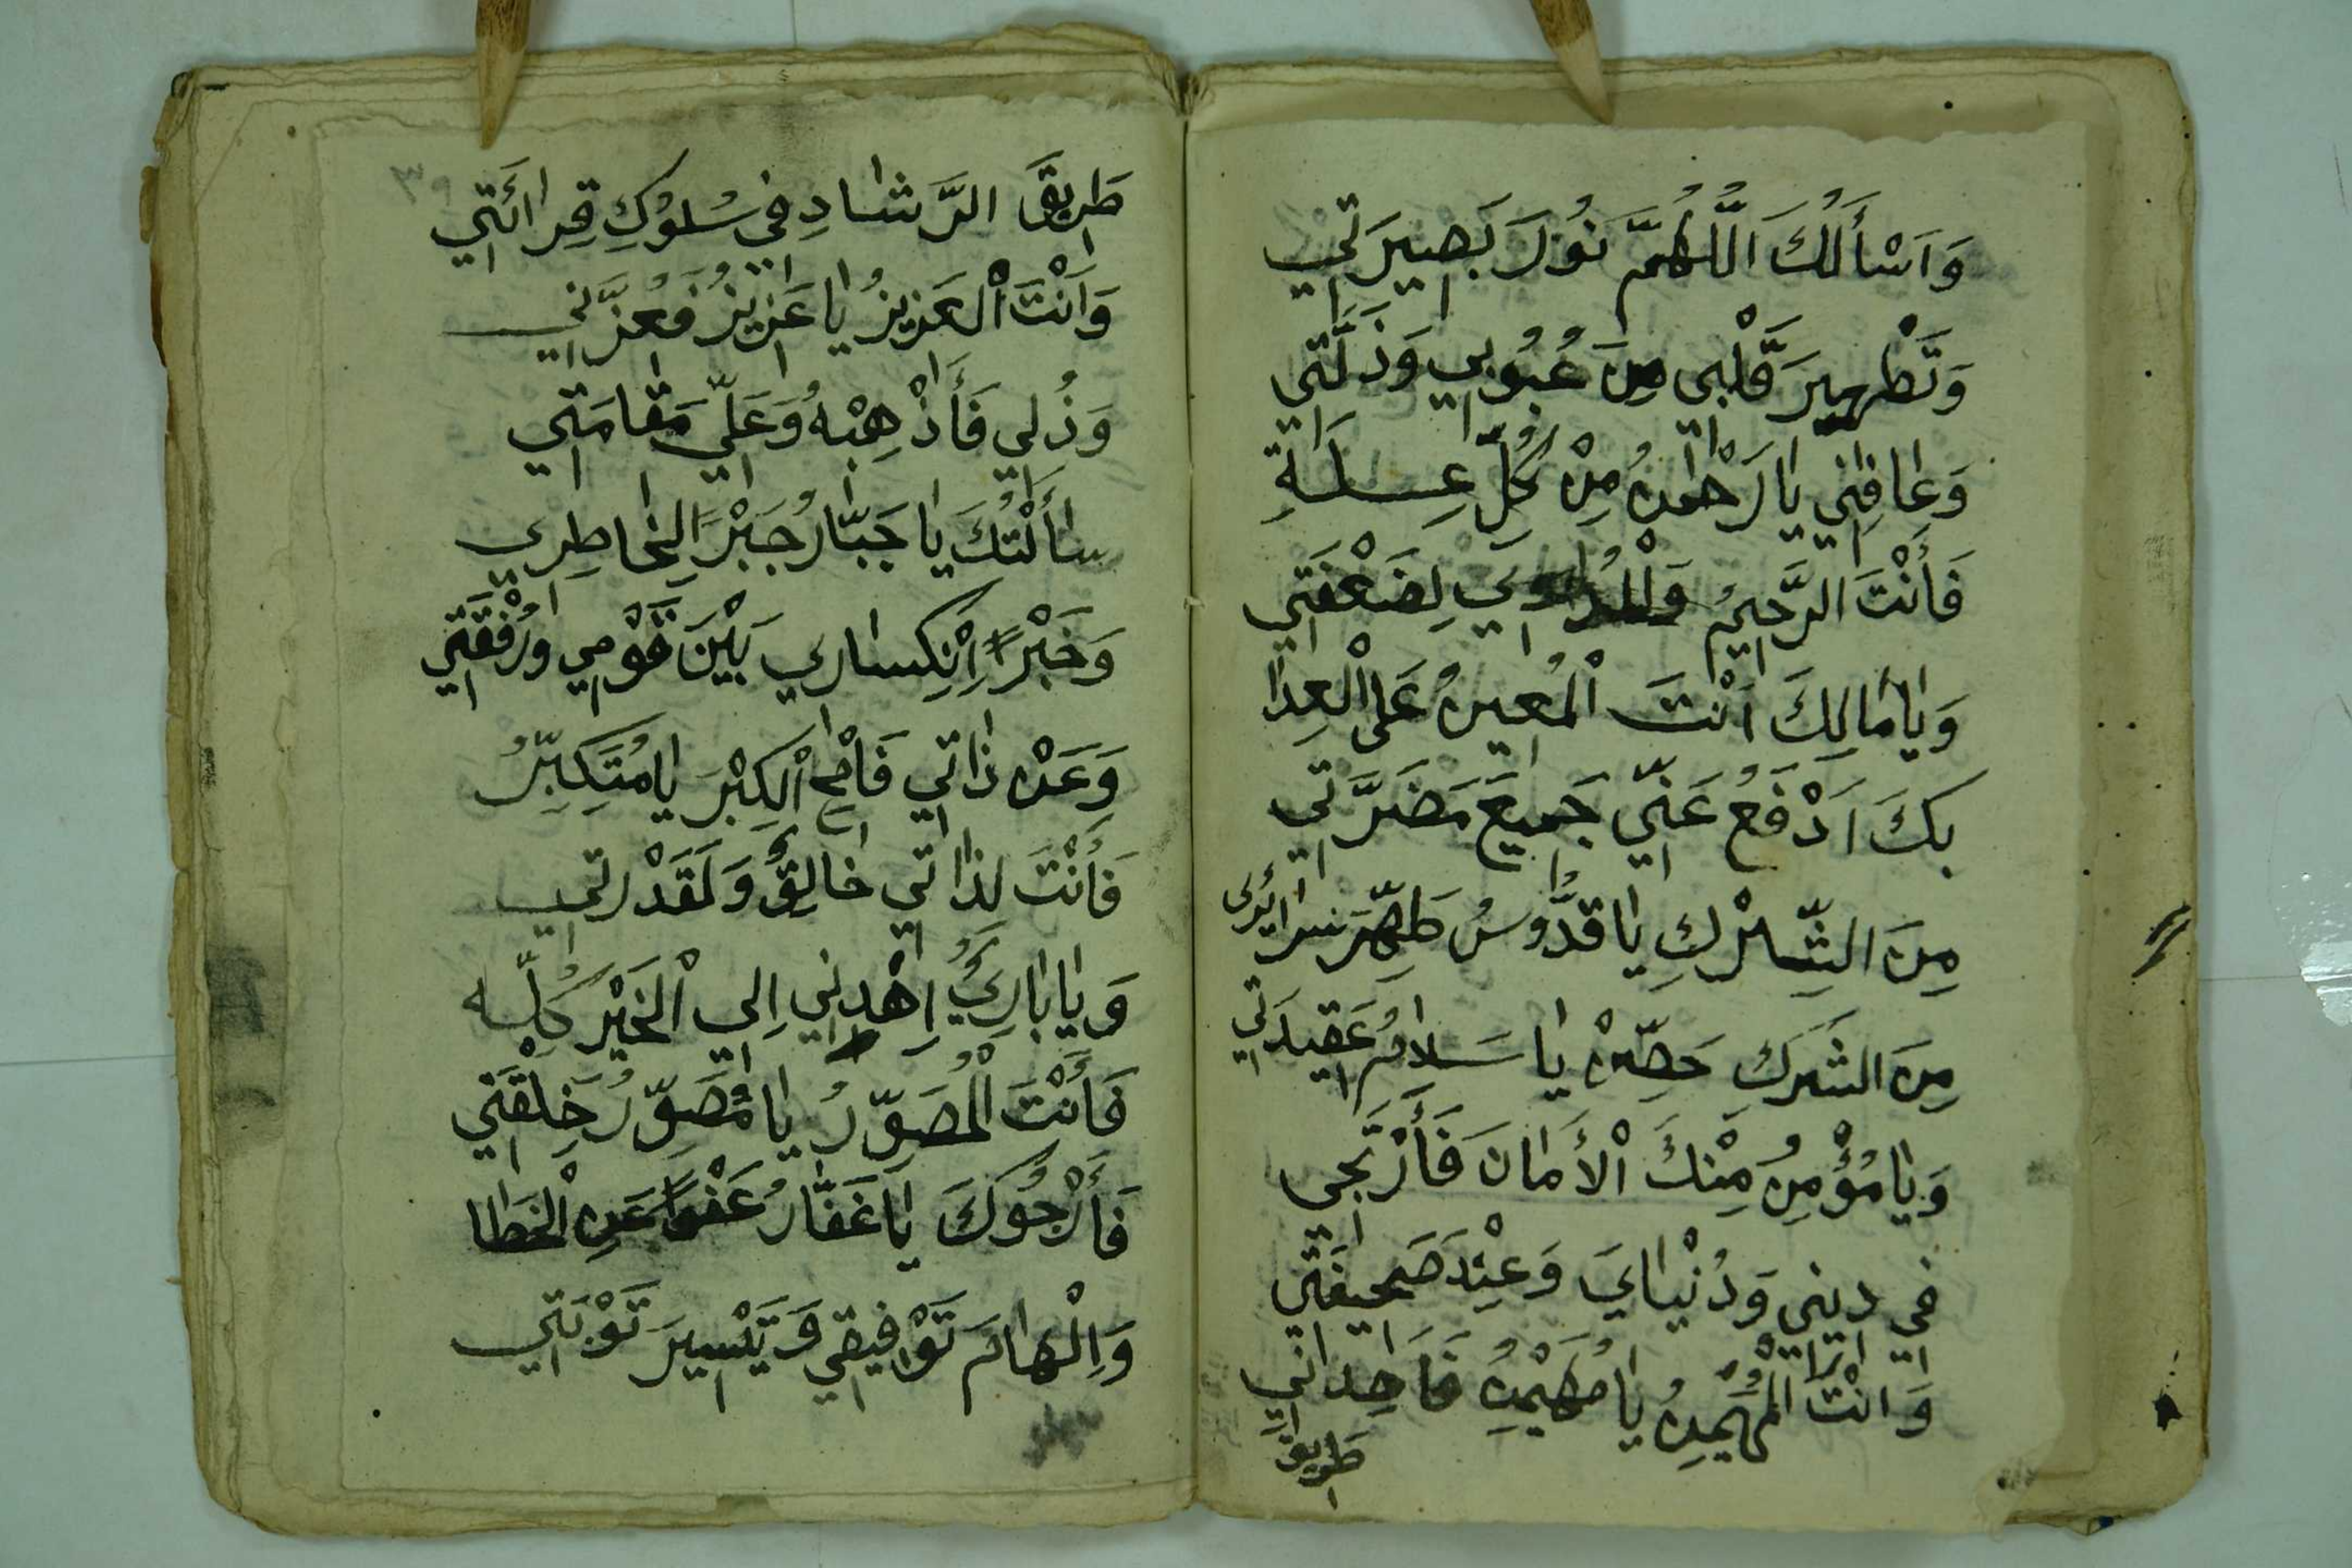 وَاَسْأَلُكَ اَللّٰهُمَّ نُوْرَ بَصِيرَتِي
وَتَطْهِيرَ قَلْبِي مِنَ عُيُوبِي وَذَلَّتِي
وَعَافِنِي يَا رَحْمٰنُ مِنْ كُلِّ عِلَةِ
فَأَنْتَ الرَّحِيمُ وَالْمُدَاوِي لِضَعْفَتِي
وَيَا مَالِكَ اَنْتَ اْلمُعِينُ عَلَى الْعِدَا
بِكَ اَدْفَعُ عَنِّي جَمِيعَ مَضَرَّتِي
مِنَ الشِّرْكِ يَا قُدُّوسُ طَهِّرْ سَرَائِرِي
مِنَ الشَّرَكِ حَصِّنْ يَا سَلَامُ عَقِيدَتِي
وَيَا مُؤْمِنُ مِنْكَ اْلأَمَانَ فَأَرْتَجِي
فِي دِينِي وَدُنْيَايَ وَعِنْدَ صَحِيفَتِي
وَاَنْتَ الْمُهَيْمِنُ يَا مُهَيْمِنُ فَاَهِدَانِي
طَرِيقَ
٣٩
طَرِيقَ الرَّشَادِ فِي سُلُوْكِ قِرَائَتِي
وَاَنْتَ اْلعَزِيزُ يَا عَزِيزُ فَعُزَّنِي
وَذُلِي فَأَذْهِبْهُ وَعَلِّي مَقَامَتِي
سَأَلْتُكَ يَا جَبَّارُ جَبْرًا لِخَاطِرِي
وَجَبْرًا اِنْكِسَارِي بَيْنَ قَوْمِي وَرُفْقَتِي
وَعَنْ ذَاتِي فَامْحِ اْلكِبْرَ يَا مُتَكَبِّرُ
فَأَنْتَ لِذَاتِي خَالِقٌ وَلَقَدْرَتِي
وَيَا بَارِئُ اِهْدِنِي اِلَي اْلخَيْرِ كُلِّه
فَأَنْتَ الْمُصَوِّرُ يَا مُصَوِّرُ خِلْقَتِي
فَأَرْجُوكَ يَا غَفَّارُ عَفْوًا عَنِ الْخَطَا
وَاِلْهَامَ تَوْفِيقِي وَتَيْسِيرَ تَوْبَتِي